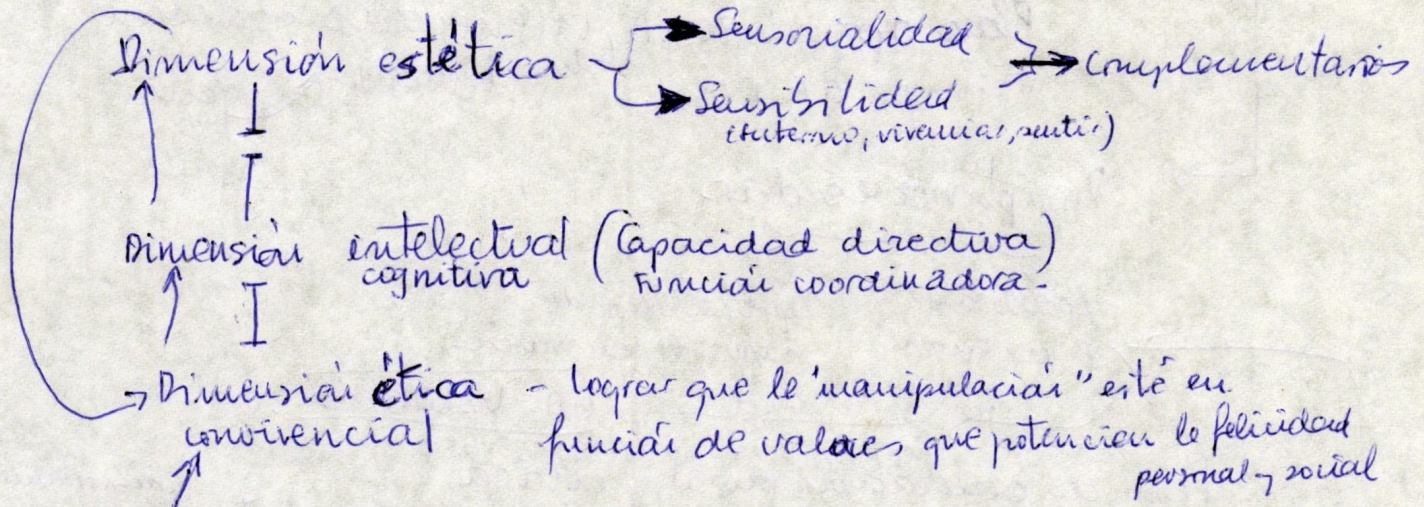 Dimensión estética
Sensorialidad
Sensibilidad
(interno, vivencias, sentir)
Complementarios
Dimensión intelectual (Capacidad directiva)
cognitiva
Función coordinadora.
Dimensión ética - lograr que la "manipulación" esté en
convivencial
función de valores que potencien la felicidad
personal y social